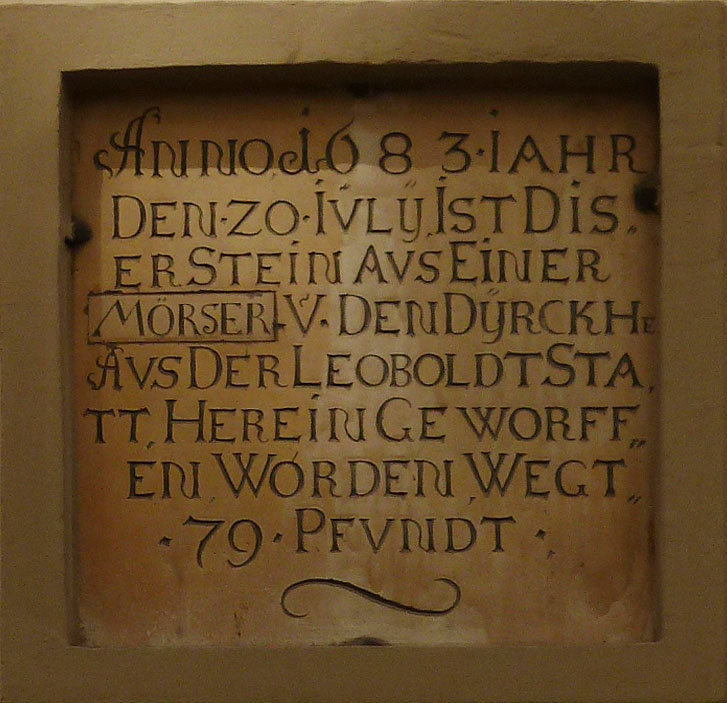 ANNO.1683.IAHR
DEN.20.IVLŸ.IST DIS.
ERSTEIN AVS EINER
MÖRSER V. DEN DŸRCKHE
AVS DER LEOBOLDTSTA,
TT, HEREIN GEWORFF,,
EN, WORDEN, WEGT,,
.79.PFVNDT.